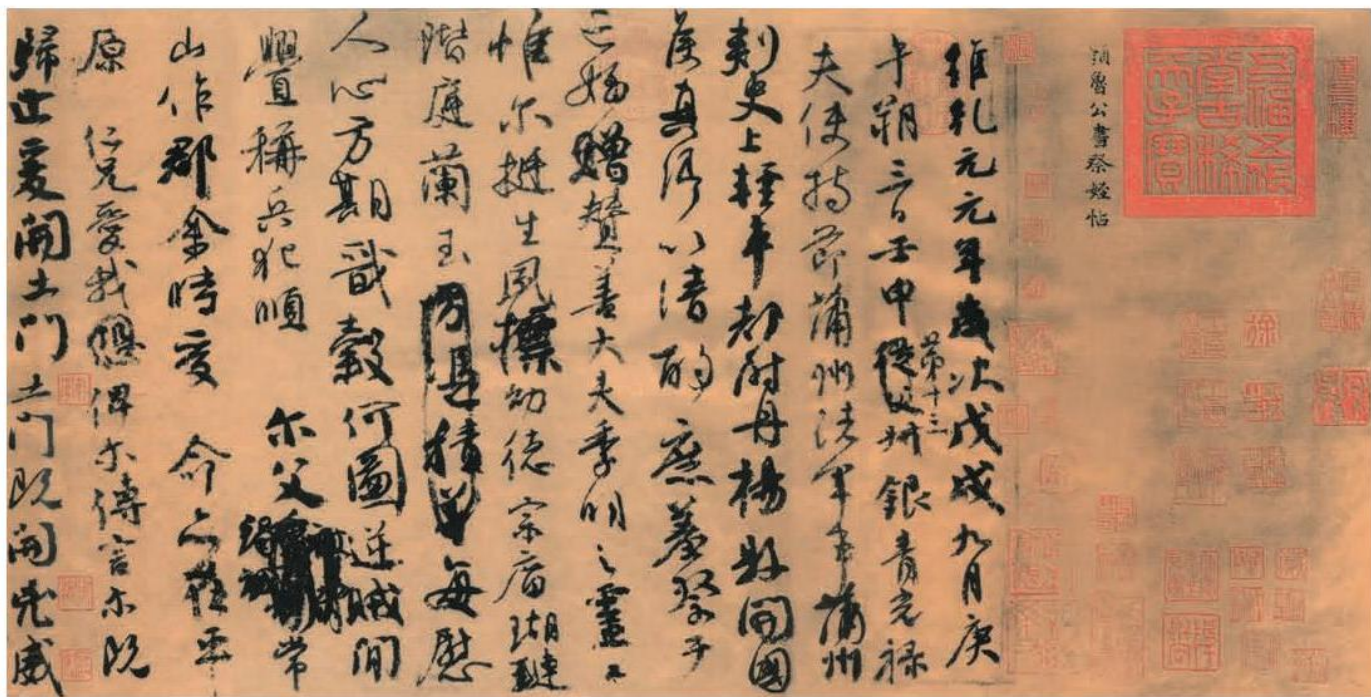 五福五代堂古稀天子寶
顔魯公書祭姪帖
維乾元元年歲次戊戌九月庚
午朔三日壬申第十三從父叔銀青光祿
夫使持節蒲州諸軍事蒲州
刺史上輕車都尉丹楊縣開國
侯真卿以清酌庶羞祭于
亡姪贈贊善大夫季明之靈曰
惟尔挺生夙標幼德宗廟瑚璉
階庭蘭玉方憑積善每慰
人心方期戩穀何圖逆賊閒
釁稱兵犯順 尔父竭誠常
山作郡余時受 命亦在平
原 仁兄愛我俾尔傳言尔既
歸止爰開土門土門既開兇威